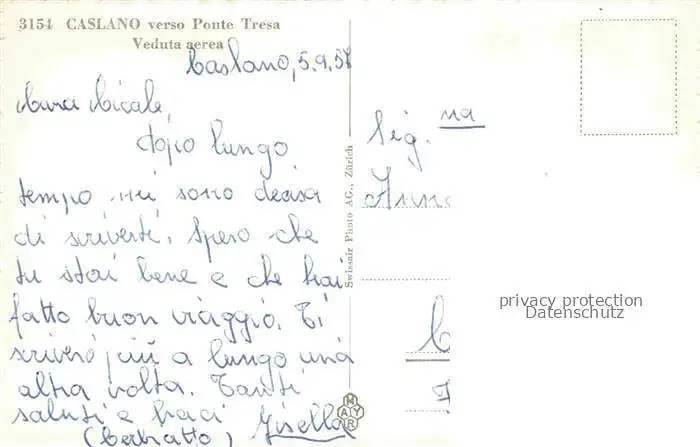 3154 CASLANO verso Ponte Tresa
Veduta aerea
Caslano, 5.9.57
Cara Cicale,
dopo lungo
tempo mi sono decisa
di scriverti. Spero che
tu stai bene e che hai
fatto buon viaggio. Ti
scriverò più a lungo una
altra volta. Tanti
saluti e baci
Gisella
Sig.na
Anna
Swissair Photo AG., Zürich
MAYR
privacy protection
Datenschutz